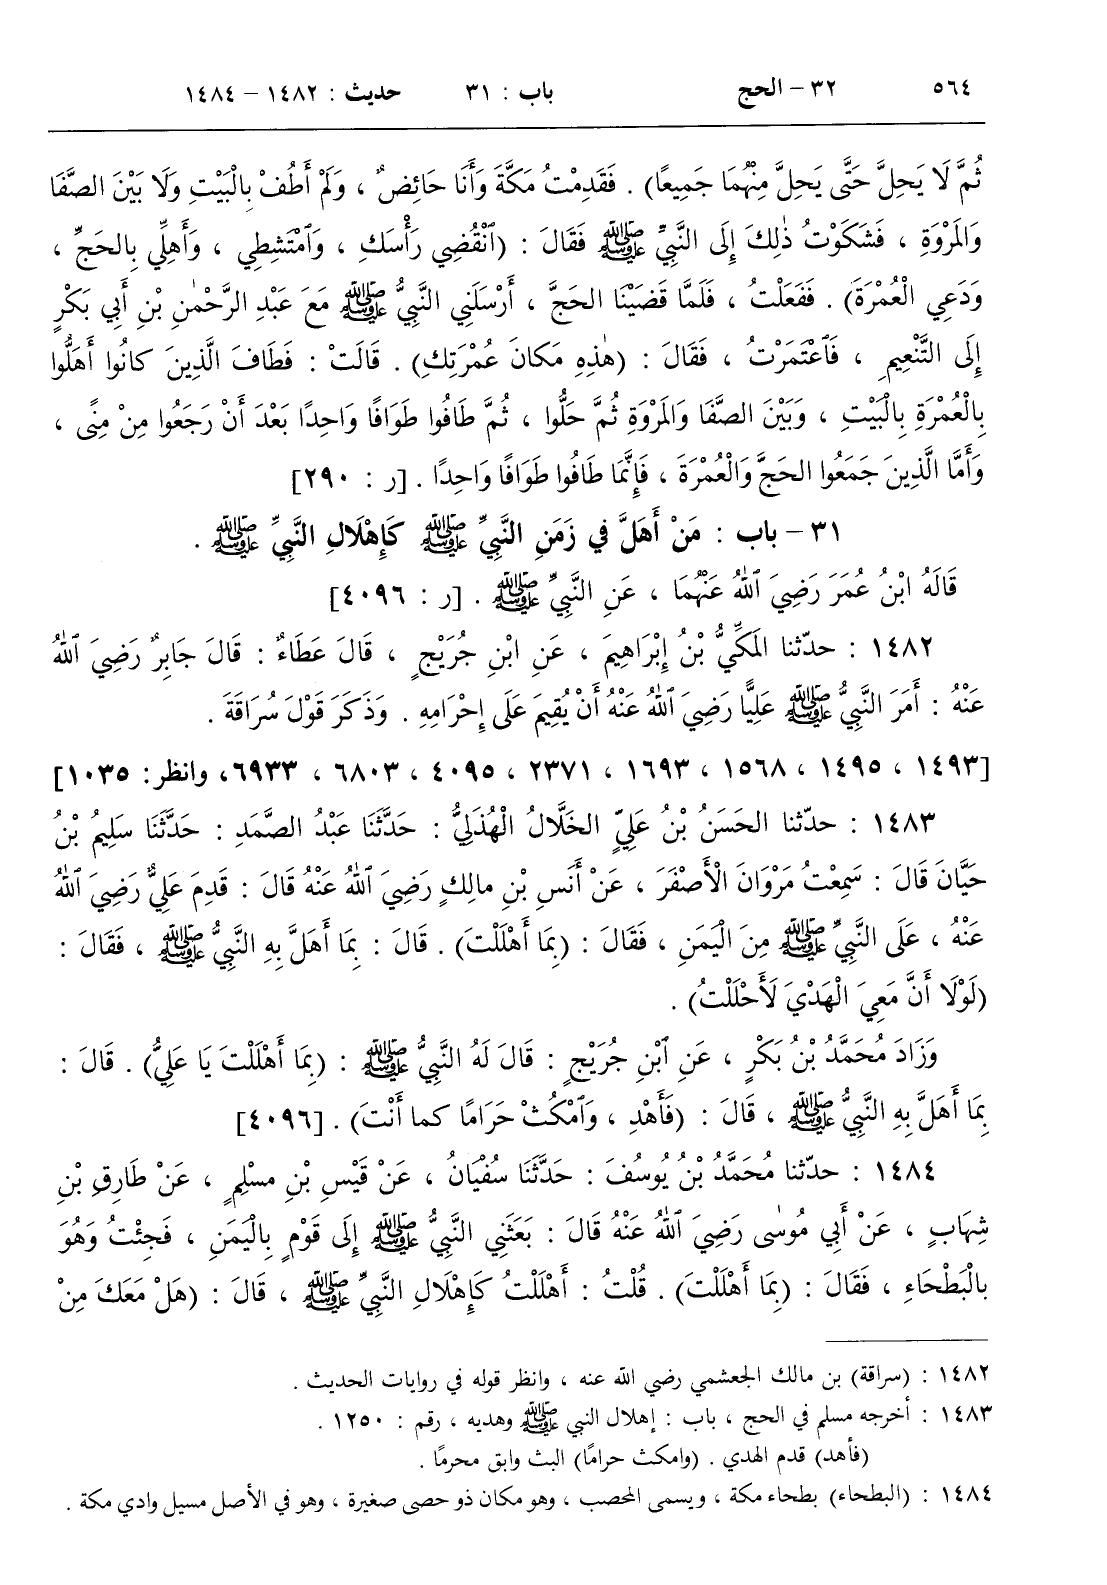 ٥٦٤ ٣٢ – الحج باب : ٣١ حديث : ١٤٨٢ – ١٤٨٤
ثُمَّ لَا يَحِلَّ حَتَّى يَحِلَّ مِنْهُمَا جَمِيعًا) . فَقَدِمْتُ مَكَّةَ وَأَنَا حَائِضٌ ، وَلَمْ أَطُفْ بِالْبَيْتِ وَلَا بَيْنَ الصَّفَا
وَالمَرْوَةِ ، فَشَكَوْتُ ذٰلِكَ إِلَى النَّبِيِّ ﷺ فَقَالَ : (ٱنْقُضِي رَأْسَكِ ، وَٱمْتَشِطِي ، وَأَهِلِّي بِالحَجِّ ،
وَدَعِي الْعُمْرَةَ) . فَفَعَلْتُ ، فَلَمَّا قَضَيْنَا الحَجَّ ، أَرْسَلَنِي النَّبِيُّ ﷺ مَعَ عَبْدِ الرَّحْمٰنِ بْنِ أَبِي بَكْرٍ
إِلَى التَّنْعِيمِ ، فَٱعْتَمَرْتُ ، فَقَالَ : (هٰذِهِ مَكانَ عُمْرَتِكِ) . قَالَتْ : فَطَافَ الَّذِينَ كانُوا أَهَلُّوا
بِالْعُمْرَةِ بِالْبَيْتِ ، وَبَيْنَ الصَّفَا وَالمَرْوَةِ ثُمَّ حَلُّوا ، ثُمَّ طَافُوا طَوَافًا وَاحِدًا بَعْدَ أَنْ رَجَعُوا مِنْ مِنًى ،
وَأَمَّا الَّذِينَ جَمَعُوا الحَجَّ وَالْعُمْرَةَ ، فَإِنَّمَا طَافُوا طَوَافًا وَاحِدًا . [ر : ٢٩٠]
٣١ – باب : مَنْ أَهَلَّ فِي زَمَنِ النَّبِيِّ ﷺ كَإِهْلَالِ النَّبِيِّ ﷺ .
قَالَهُ ابْنُ عُمَرَ رَضِيَ ٱللهُ عَنْهُمَا ، عَنِ النَّبِيِّ ﷺ . [ر : ٤٠٩٦]
١٤٨٢ : حدّثنا المَكِّيُّ بْنُ إِبْرَاهِيمَ ، عَنِ ابْنِ جُرَيْجٍ ، قَالَ عَطَاءٌ : قَالَ جَابِرٌ رَضِيَ ٱللهُ
عَنْهُ : أَمَرَ النَّبِيُّ ﷺ عَلِيًّا رَضِيَ ٱللهُ عَنْهُ أَنْ يُقِيمَ عَلَى إِحْرَامِهِ . وَذَكَرَ قَوْلَ سُرَاقَةَ .
[١٤٩٣ ، ١٤٩٥ ، ١٥٦٨ ، ١٦٩٣ ، ٢٣٧١ ، ٤٠٩٥ ، ٦٨٠٣ ، ٦٩٣٣، وانظر: ١٠٣٥]
١٤٨٣ : حدّثنا الحَسَنُ بْنُ عَلِيٍّ الخَلَّالُ الْهُذَلِيُّ : حَدَّثَنَا عَبْدُ الصَّمَدِ : حَدَّثَنَا سَلِيمُ بْنُ
حَيَّانَ قَالَ : سَمِعْتُ مَرْوَانَ الْأَصْفَرَ ، عَنْ أَنَسِ بْنِ مالِكٍ رَضِيَ ٱللهُ عَنْهُ قَالَ : قَدِمَ عَلِيٌّ رَضِيَ ٱللهُ
عَنْهُ ، عَلَى النَّبِيِّ ﷺ مِنَ الْيَمَنِ ، فَقَالَ : (بِمَا أَهْلَلْتَ) . قَالَ : بِمَا أَهَلَّ بِهِ النَّبِيُّ ﷺ ، فَقَالَ :
(لَوْلَا أَنَّ مَعِيَ الْهَدْيَ لَأَحْلَلْتُ) .
وَزَادَ مُحَمَّدُ بْنُ بَكْرٍ ، عَنِ ٱبْنِ جُرَيْجٍ : قَالَ لَهُ النَّبِيُّ ﷺ : (بِمَا أَهْلَلْتَ يَا عَلِيُّ) . قَالَ :
بِمَا أَهَلَّ بِهِ النَّبِيُّ ﷺ ، قَالَ : (فَأَهْدِ ، وَٱمْكُثْ حَرَامًا كما أَنْتَ) . [٤٠٩٦]
١٤٨٤ : حدّثنا مُحَمَّدُ بْنُ يُوسُفَ : حَدَّثَنَا سُفْيَانُ ، عَنْ قَيْسِ بْنِ مسْلِمٍ ، عَنْ طَارِقِ بْنِ
شِهَابٍ ، عَنْ أَبِي مُوسٰى رَضِيَ ٱللهُ عَنْهُ قَالَ : بَعَثَنِي النَّبِيُّ ﷺ إِلَى قَوْمٍ بِالْيَمَنِ ، فَجِئْتُ وَهُوَ
بِالْبَطْحَاءِ ، فَقَالَ : (بِمَا أَهْلَلْتَ) . قُلْتُ : أَهْلَلْتُ كَإِهْلَالِ النَّبِيِّ ﷺ ، قَالَ : (هَلْ مَعَكَ مِنْ
١٤٨٢ : (سراقة) بن مالك الجعشمي رضي الله عنه ، وانظر قوله في روايات الحديث .
١٤٨٣ : أخرجه مسلم في الحج ، باب : إهلال النبي ﷺ وهديه ، رقم : ١٢٥٠ .
(فأهد) قدم الهدي . (وامكث حرامًا) البث وابق محرمًا .
١٤٨٤ : (البطحاء) بطحاء مكة ، ويسمى المحصب ، وهو مكان ذو حصى صغيرة ، وهو في الأصل مسيل وادي مكة .